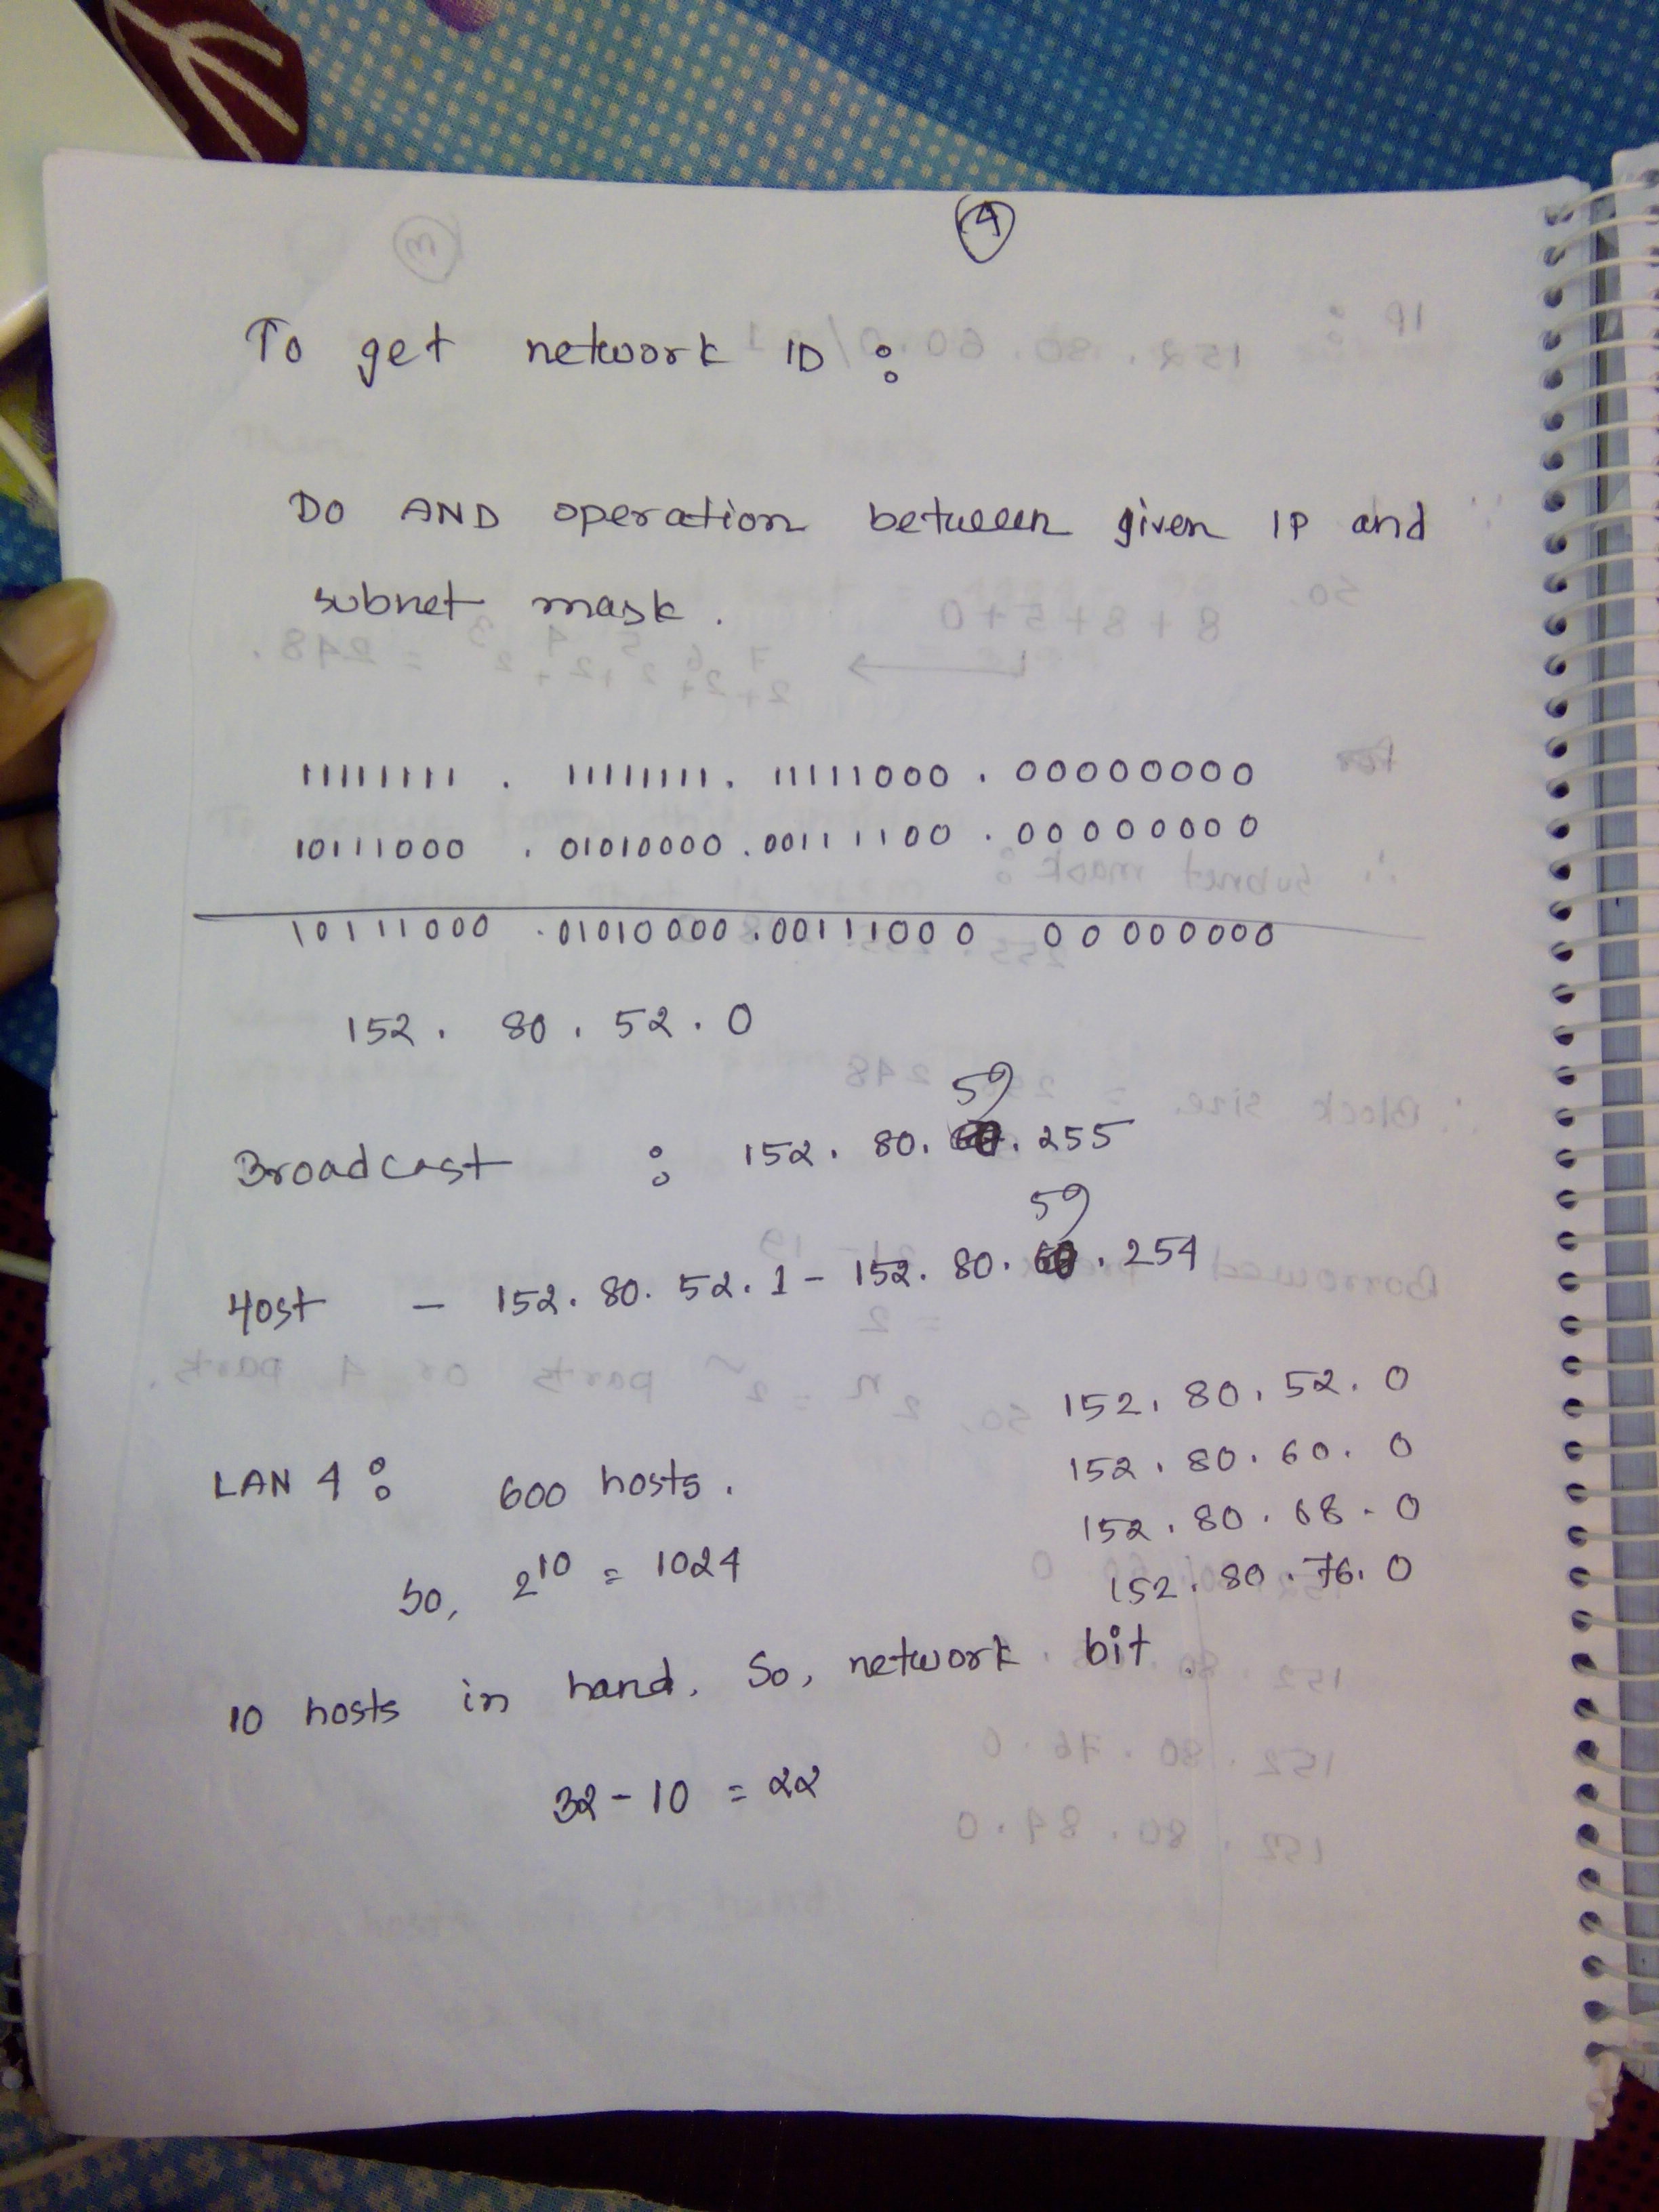 4
To get network ID :
DO AND operation between given IP and
subnet mask.
11111111 . 11111111. 11111000 . 00000000
10111000 . 01010000 . 00111100 . 00000000
10111000 . 01010000 . 00111000 00000000
152. 80. 52. 0
59
Broadcast : 152. 80. . 255
59
Host - 152. 80. 52. 1 - 152. 80. . 254
152. 80. 52. 0
152. 80. 60. 0
152. 80. 68. 0
152. 80. 76. 0
LAN 4 : 600 hosts.
So, 2^10 = 1024
10 hosts in hand. So, network bit.
32 - 10 = 22